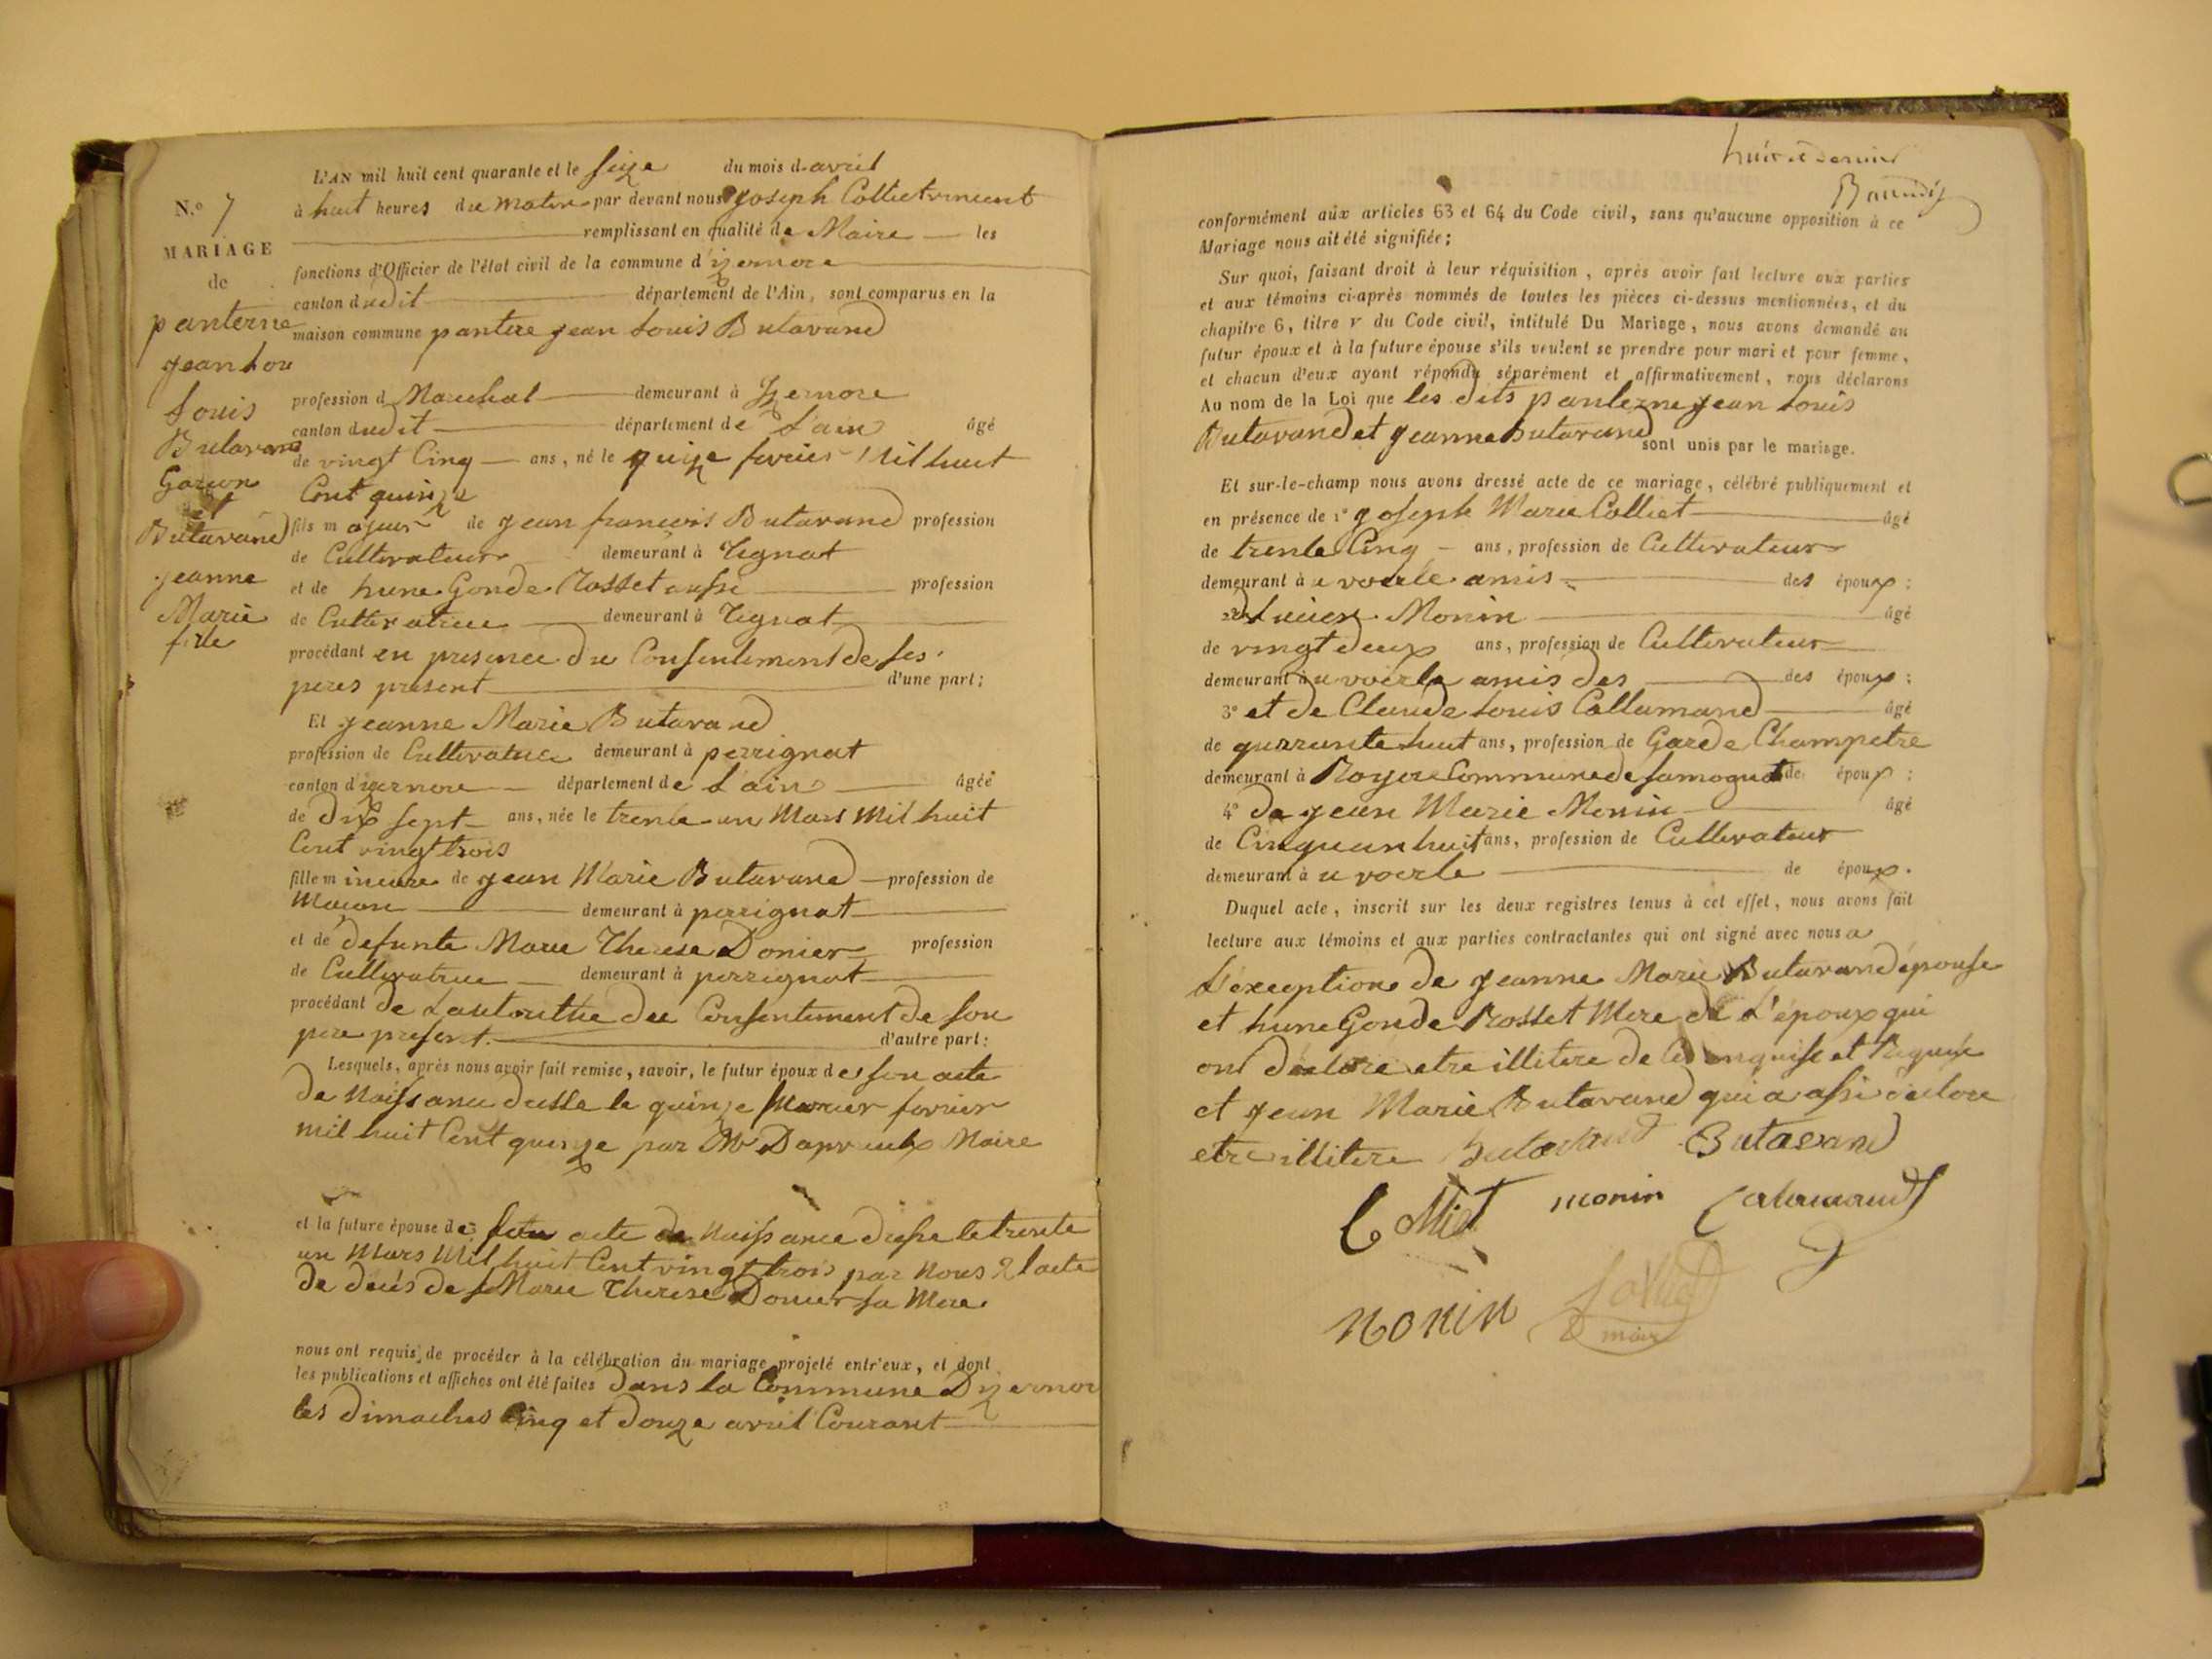 N.° 7
MARIAGE
de
panterne
jean Lou
Louis
Butavand
Garçon
et
Butavand
jeanne
Marie
fille
L'AN mil huit cent quarante et le seize du mois d avril
à huit heures du matin par devant nous joseph Colliet vincent
remplissant en qualité de Maire les
fonctions d'Officier de l'état civil de la commune d'izernore
canton dudit département de l'Ain, sont comparus en la
maison commune panterne jean Louis Butavand
profession d Marechal demeurant à Izernore
canton dudit département de L'ain âgé
de vingt Cinq ans, né le quize fevrier Mil huit
Cent quinze
fils majeur de jean francois Butavand profession
de Cultivateur demeurant à Tignat
et de hune Gonde Rosset aussi profession
de Cultivatrice demeurant à Tignat
procédant en presence du Consentement de ses
peres present d'une part;
Et jeanne Marie Butavand
profession de Cultivatrice demeurant à perrignat
canton d'izernore département de L'ain âgée
de dix sept ans, née le trente un Mars Mil huit
Cent vingt trois
fille mineure de jean Marie Butavand profession de
Maçon demeurant à perrignat
et de defunte Marie Therese Donier profession
de Cultivatrice demeurant à perrignat
procédant de L'autorithe du Consentement de son
pere present. d'autre part:
Lesquels, après nous avoir fait remise, savoir, le futur époux de son acte
de Naissance dusse le quinze fevrier
mil huit Cent quinze par Mr Maire
et la future épouse de son acte de Naissance dusse le trente
un Mars Mil huit Cent vingt trois par Nous & lacte
de deces de Marie Therese Donier sa Mere
nous ont requis de procéder à la célébration du mariage projeté entr'eux, et dont
les publications et affiches ont été faites dans la Commune Dizernore
les dimaches cinq et douze avril Courant
conformément aux articles 63 et 64 du Code civil, sans qu'aucune opposition à ce
Mariage nous ait été signifiée;
Sur quoi, faisant droit à leur réquisition, après avoir fait lecture aux parties
et aux témoins ci-après nommés de toutes les pièces ci-dessus mentionnées, et du
chapitre 6, titre v du Code civil, intitulé Du Mariage, nous avons demandé au
futur époux et à la future épouse s'ils veulent se prendre pour mari et pour femme,
et chacun d'eux ayant répondu séparément et affirmativement, nous déclarons
Au nom de la Loi que les dits panterne jean Louis
Butavand et jeanne Butavand sont unis par le mariage.
Et sur-le-champ nous avons dressé acte de ce mariage, célébré publiquement et
en présence de 1° joseph Marie Colliet âgé
de trente Cinq ans, profession de Cultivateur
demeurant à u voerle amis des époux;
2° Lucien Monin âgé
de vingt deux ans, profession de Cultivateur
demeurant à u voerle amis des des époux;
3° et de Claude Louis Callamand âgé
de quarrante huit ans, profession de Garde Champetre
demeurant à Royere Commune de Samognat de époux;
4° de jean Marie Monin âgé
de Cinquan huit ans, profession de Cultivateur
demeurant à u voerle de époux.
Duquel acte, inscrit sur les deux registres tenus à cet effet, nous avons fait
lecture aux témoins et aux parties contractantes qui ont signé avec nous a
L'exception de jeanne Marie Butavand épouse
et hune Gonde Rosset Mere de L'époux qui
ont declore etre illitere de ce enquise et requise
et jean Marie Butavand qui a assi declore
etre illitere Butavand Butavand
Colliet monin Calamand
MONIN Colliet
maire